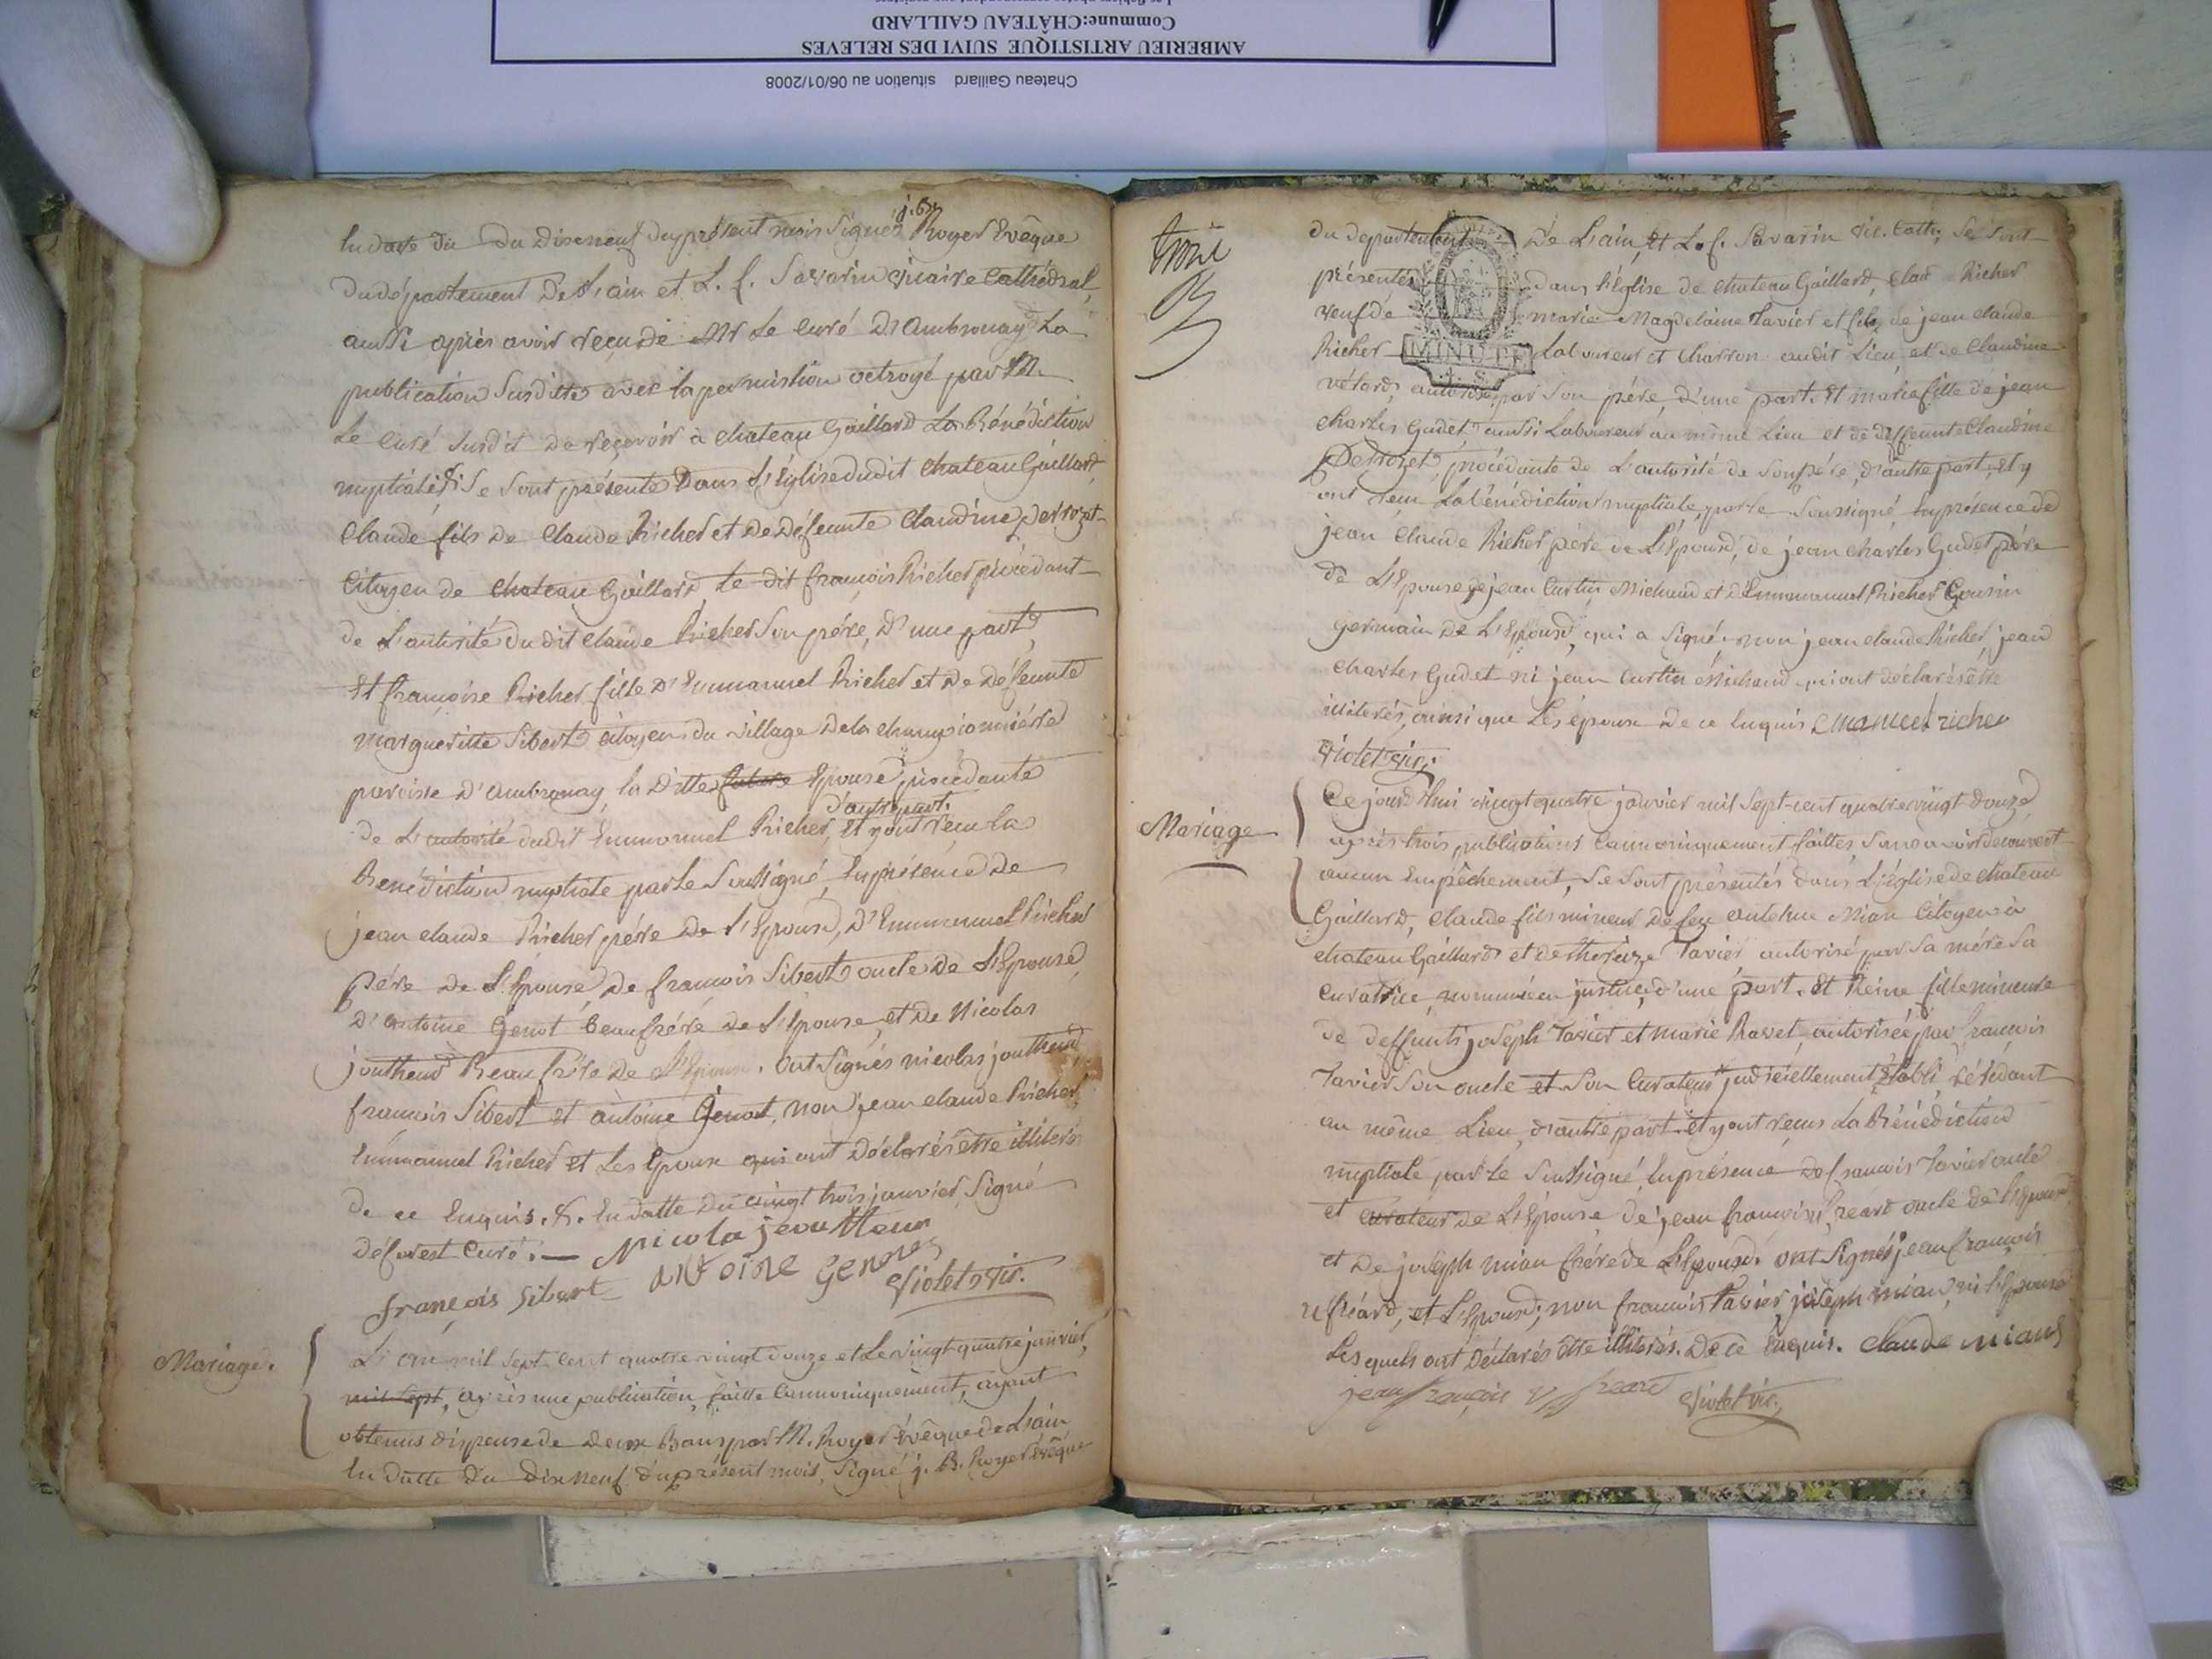 Chateau Gaillard situation au 06/01/2008
AMBERIEU ARTISTIQUE SUIVI DES RELEVES
Commune:CHÂTEAU GAILLARD
j. B.
du dixneuf du présent mois Signés Royer Evêque
du département De L'ain et L. f. Savarin vicaire Cathédral,
aussi après avoir reçu de Mr Le Curé D'Ambronay La
publication Susditte avec la permission octroyé par M.
Le Curé Susdit De reçevoir à chateau Gaillard La Bénédiction
nuptiale, Se Sont présenté Dans L'Eglise dudit chateau Gaillard,
Claude fils De Claude Richer et De Défeunte Claudine perrozet
Citoyen de chateau Gaillard, Le dit françois Richer procédant
de L'autorité du dit Claude Richer Son père, D'une part,
Et françoise Richer fille D'Emmanuel Richer et De Défeunte
margueritte Sibert citoyen du village De la championnière
paroisse D'Ambronay, la Ditte future Epouse procédante
d'autre part.
de L'autorité dudit Emmanuel Richer, Et y ont reçu la
Bénédiction nuptiale par le Soussigné, En présence De
jean claude Richer père De L'Epoux, D'Emmanuel Richer
Père De L'Epouse, De françois Sibert oncle De L'Epouse,
D'antoine Genot beaufrére De L'Epouse, et De Nicolas
joutheur Beaufrére De L'Epoux. Ont Signés nicolas joutheur
françois Sibert et antoine Genot, non jean claude Richer,
Emmanuel Richer Et Les Epoux qui ont Déclarés être illiterés
De ce Enquis. &. En datte Du vingt trois janvier, Signé
déforest Curé. — Nicola jeoutteur
françois Sibert antoine Genot Violet vic.
Mariage.
L'an mil Sept Cent quatre vingt douze et Le vingt-quatre janvier,
mil Sept, après une publication, faitte Cannoniquement, ayant
obtenus dispense de deux Bans par M. Royer Evêque de L'ain
En datte du dix neuf du présent mois, Signé j. B. Royer évêque
du departement De L'ain, Et L. f. Savarin vic. Cath; Se Sont
présentés dans L'église de chateau Gaillard, Claude Richer
veuf de marie Magdelaine Tavier et fils de jean claude
Richer MINUTE Laboureur et Charron audit Lieu et de Claudine
autorisé par Son père, D'une part. Et marie fille de jean
charles Gudet aussi Laboureur au même Lieu et de deffeunte Claudine
Perrozet, procédante de L'autorité de Son père, d'autre part, et y
ont reçu La Bénédiction nuptiale, par le Soussigné, En présence de
jean Claude Richer père de L'Epoux, de jean charles Gudet père
de L'Epouse, de jean Curtin Michaud et d'Emmanuel Richer Cousin
germain de L'Epoux, qui a Signé, non jean claude Richer, jean
charles Gudet ni jean Curtin Michaud qui ont déclarés être
illiterés, ainsi que Les époux De ce Enquis Emanuel richer
Violet vic.
Mariage
Ce jourd'hui vingt quatre janvier mil Sept-cent quatre vingt douze,
après trois publications Cannoniquement faittes, Sans avoir découvert
aucun Empêchement, Se Sont présentés dans L'église de chateau
Gaillard, Claude fils mineur de feu antoine Mian Citoyen à
chateau Gaillard et de thereze Tavier, autorisé par Sa mére Sa
Curatrice nommée en justice, d'une part. Et Reine fille mineure
de deffunts joseph Tavier et marie Ravet, autorisée par françois
Tavier Son oncle et Son Curateur judiciellement établi résidant
au même Lieu, d'autre part. et y ont reçus La Bénédiction
nuptiale par Le Soussigné, En présence De françois Tavier oncle
et Curateur De L'Epouse De jean françois oncle de L'Epoux
et De joseph mian frére de L'Epoux. Ont Signés jean françois
et L'Epoux; non françois Tavier joseph mian, ni L'Epouse
Lesquels ont Déclarés être illiterés. De ce Enquis. Claude mian
jean françois Violet vic.